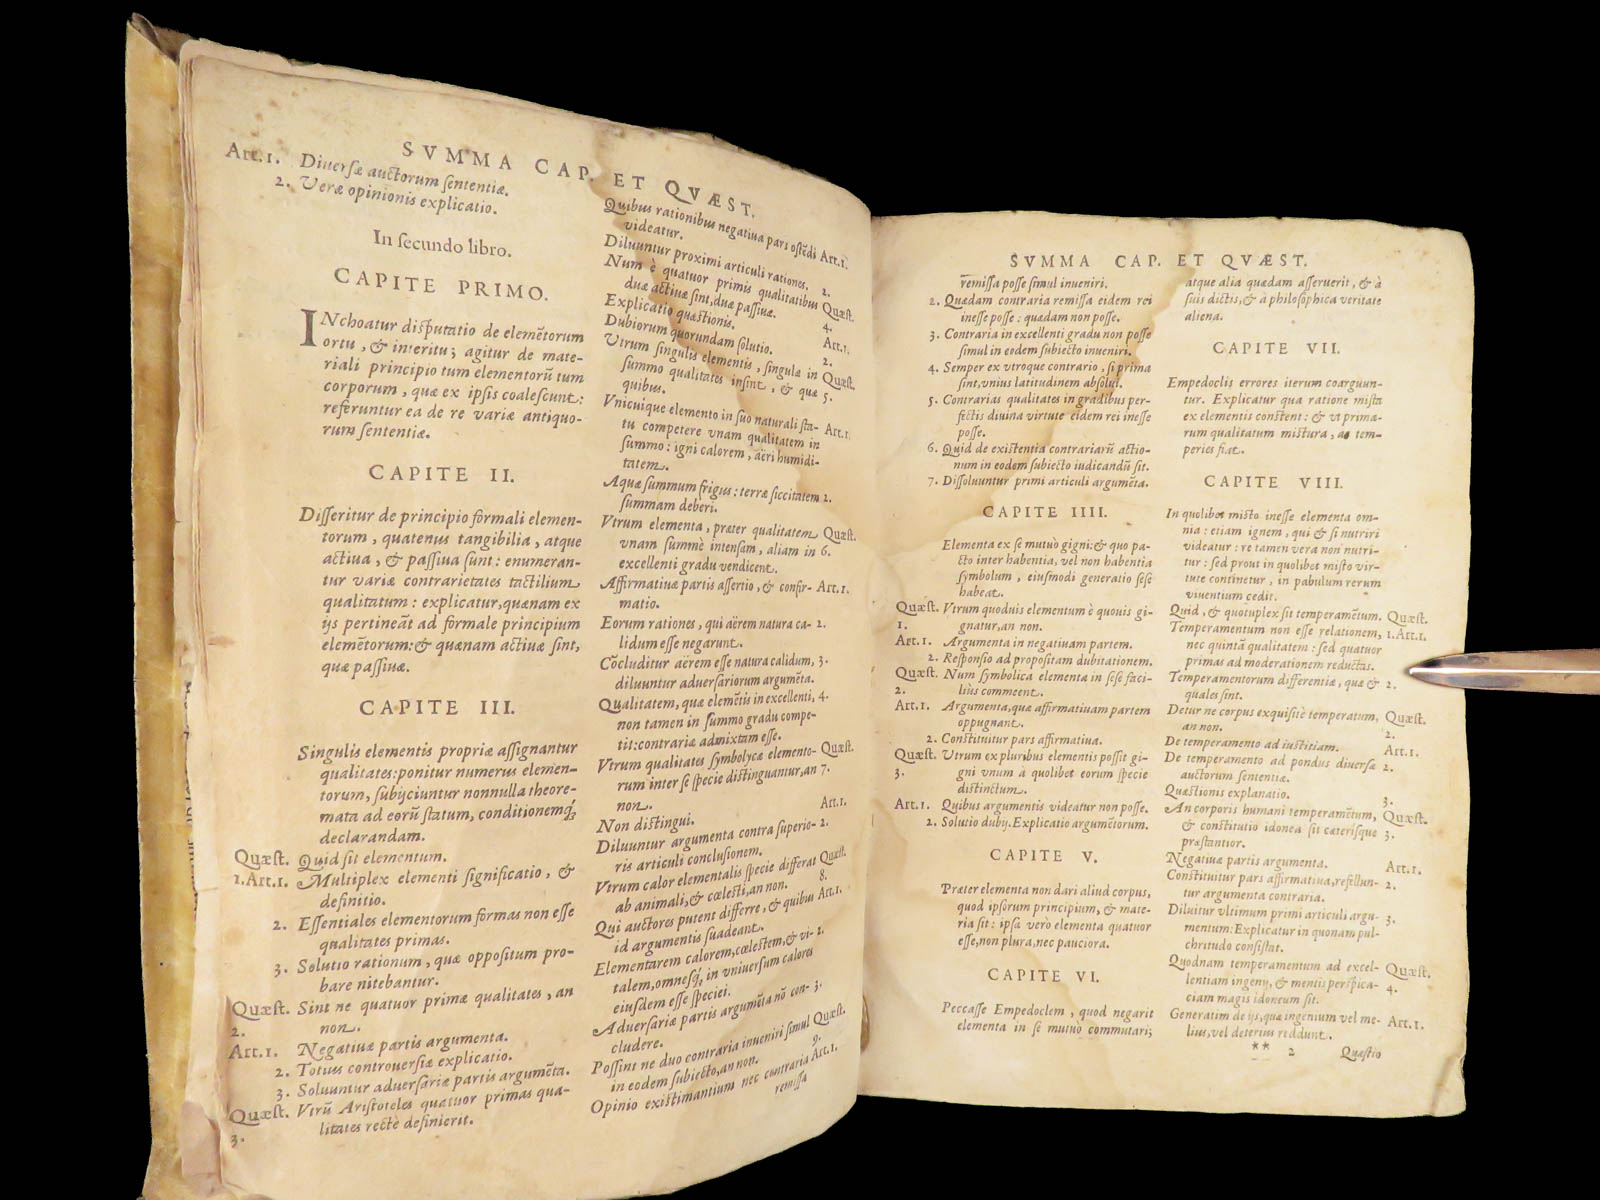 SVMMA CAP. ET QVÆST.
Art. 1. Diuersæ auctorum sententiæ.
2. Veræ opinionis explicatio.
In secundo libro.
CAPITE PRIMO.
INchoatur disputatio de elemẽtorum
ortu, & interitu; agitur de mate-
riali principio tum elementorũ tum
corporum, quæ ex ipsis coalescunt:
referuntur ea de re variæ antiquo-
rum sententiæ.
CAPITE II.
Disseritur de principio formali elemen-
torum, quatenus tangibilia, atque
actiua, & passiua sunt: enumeran-
tur variæ contrarietates tactilium
qualitatum: explicatur, quænam ex
ijs pertineãt ad formale principium
elemẽtorum: & quænam actiuæ sint,
quæ passiuæ.
CAPITE III.
Singulis elementis propriæ assignantur
qualitates: ponitur numerus elemen-
torum, subijciuntur nonnulla theore-
mata ad eorũ statum, conditionemq́;
declarandam.
Quæst. Quid sit elementum.
1. Art. 1. Multiplex elementi significatio, &
definitio.
2. Essentiales elementorum formas non esse
qualitates primas.
3. Solutio rationum, quæ oppositum pro-
bare nitebantur.
Quæst. Sint ne quatuor primæ qualitates, an
2. non.
Art. 1. Negatiuæ partis argumenta.
2. Totius controuersiæ explicatio.
3. Soluuntur aduersariæ partis argumẽta.
Quæst. Vtrũ Aristoteles quatuor primas qua-
3. litates rectè definierit.
Quibus rationibus negatiua pars ostẽdi Art. 1.
videatur.
Diluuntur proximi articuli rationes. 2.
Num è quatuor primis qualitatibus Quæst.
duæ actiuæ sint, duæ passiuæ. 4.
Explicatio quæstionis. Art. 1.
Dubiorum quorundam solutio. 2.
Vtrum singulis elementis, singulæ in Quæst.
summo qualitates insint, & quæ 5.
quibus.
Vnicuique elemento in suo naturali sta- Art. 1.
tu competere vnam qualitatem in
summo: igni calorem, aëri humidi-
tatem.
Aquæ summum frigus: terræ siccitatem 2.
summam deberi.
Vtrum elementa, præter qualitatem Quæst.
vnam summè intensam, aliam in 6.
excellenti gradu vendicent.
Affirmatiuæ partis assertio, & confir- Art. 1.
matio.
Eorum rationes, qui aërem natura ca- 2.
lidum esse negarunt.
Cõcluditur aërem esse natura calidum, 3.
diluuntur aduersariorum argumẽta.
Qualitatem, quæ elemẽtis in excellenti, 4.
non tamen in summo gradu compe-
tit: contrariæ admixtam esse.
Vtrum qualitates symbolycæ elemento- Quæst.
rum inter se specie distinguantur, an 7.
non.
Non distingui. Art. 1.
Diluuntur argumenta contra superio- 2.
ris articuli conclusionem.
Vtrum calor elementalis specie differat Quæst.
ab animali, & cœlesti, an non. 8.
Qui auctores putent differre, & quibus Art. 1.
id argumentis suadeant.
Elementarem calorem, cœlestem, & vi- 2.
talem, omnesq́; in vniuersum calores
eiusdem esse speciei.
Aduersariæ partis argumẽta nõ con- 3.
cludere.
Possint ne duo contraria inueniri simul Quæst.
in eodem subiecto, an non. 9.
Opinio existimantium nec contraria Art. 1.
remissa
SVMMA CAP. ET QVÆST.
remissa posse simul inueniri.
2. Quædam contraria remissa eidem rei
inesse posse: quædam non posse.
3. Contraria in excellenti gradu non posse
simul in eodem subiecto inueniri.
4. Semper ex vtroque contrario, si prima
sint, vnius latitudinem absolui.
5. Contrarias qualitates in gradibus per-
fectis diuina virtute eidem rei inesse
posse.
6. Quid de existentia contrariarũ actio-
num in eodem subiecto iudicandũ sit.
7. Dissoluuntur primi articuli argumẽta.
CAPITE IIII.
Elementa ex se mutuò gigni: & quo pa-
cto inter habentia, vel non habentia
symbolum, eiusmodi generatio sese
habeat.
Quæst. Vtrum quoduis elementum è quouis gi-
1. gnatur, an non.
Art. 1. Argumenta in negatiuam partem.
2. Responsio ad propositam dubitationem.
Quæst. Num symbolica elementa in sese faci-
2. liùs commeent.
Art. 1. Argumenta, quæ affirmatiuam partem
oppugnant.
2. Constituitur pars affirmatiua.
Quæst. Vtrum ex pluribus elementis possit gi-
3. gni vnum à quolibet eorum specie
distinctum.
Art. 1. Quibus argumentis videatur non posse.
2. Solutio dubij. Explicatio argumẽtorum.
CAPITE V.
Præter elementa non dari aliud corpus,
quod ipsorum principium, & mate-
ria sit: ipsa verò elementa quatuor
esse, non plura, nec pauciora.
CAPITE VI.
Peccasse Empedoclem, quod negarit
elementa in se mutuò commutari;
atque alia quædam asseruerit, & à
suis dictis, & à philosophica veritate
aliena.
CAPITE VII.
Empedoclis errores iterum coarguun-
tur. Explicatur qua ratione mista
ex elementis constent: & vt prima-
rum qualitatum mistura, ac tem-
peries fiat.
CAPITE VIII.
In quolibet misto inesse elementa om-
nia: etiam ignem, qui & si nutriri
videatur: re tamen vera non nutri-
tur: sed prout in quolibet misto vir-
tute continetur, in pabulum rerum
viuentium cedit.
Quid, & quotuplex sit temperamẽtum. Quæst.
Temperamentum non esse relationem, 1. Art. 1.
nec quintã qualitatem: sed quatuor
primas ad moderationem reductas.
Temperamentorum differentiæ, quæ & 2.
quales sint.
Detur ne corpus exquisitè temperatum, Quæst.
an non. 2.
De temperamento ad iustitiam. Art. 1.
De temperamento ad pondus diuersæ 2.
auctorum sententiæ.
Quæstionis explanatio. 3.
An corporis humani temperamẽtum, Quæst.
& constitutio idonea sit cæterisque 3.
præstantior.
Negatiuæ partis argumenta. Art. 1.
Constituitur pars affirmatiua, refellun- 2.
tur argumenta contraria.
Diluitur vltimum primi articuli argu- 3.
mentum: Explicatur in quonam pul-
chritudo consistat.
Quodnam temperamentum ad excel- Quæst.
lentiam ingenij, & mentis perspica- 4.
ciam magis idoneum sit.
Generatim de ijs, quæ ingenium vel me- Art. 1.
lius, vel deterius reddunt.
** 2 Quæstio